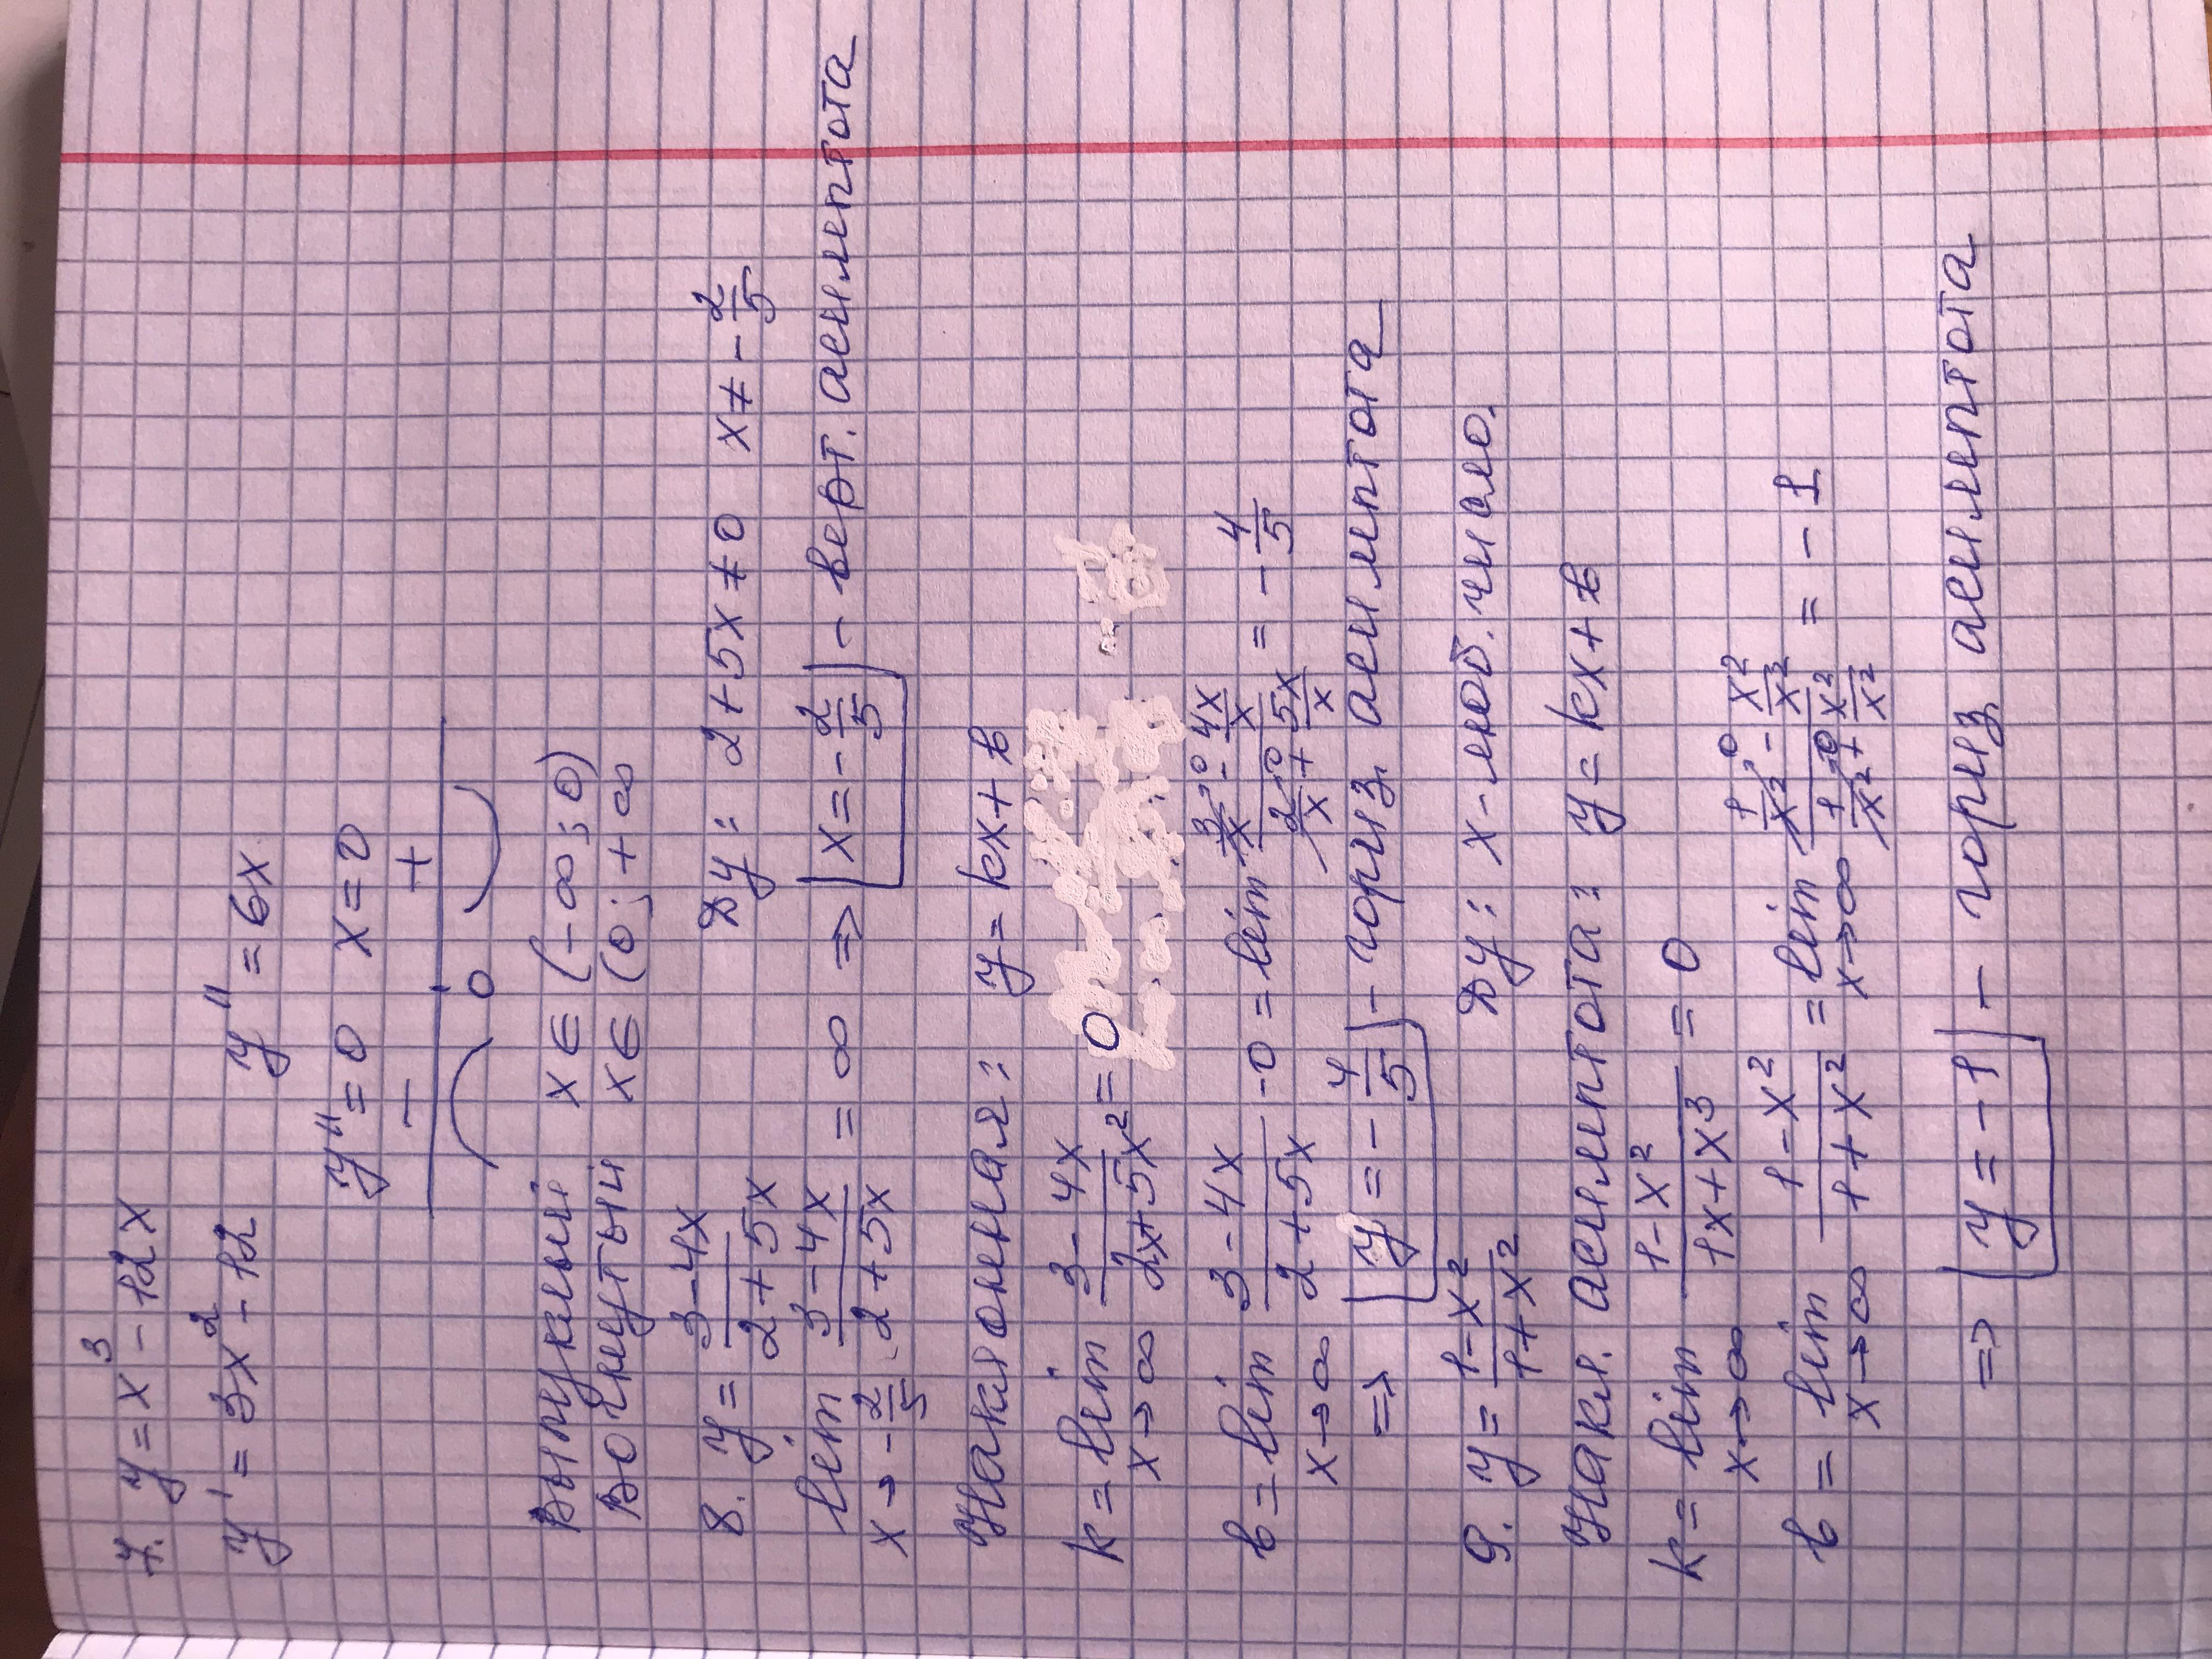 7. y = x³ - 12x
y' = 3x² - 12 y'' = 6x
y'' = 0 x = 0
- +
0
Выпуклый x ∈ (-∞; 0)
Вогнутый x ∈ (0; +∞
8. y = (3-4x)/(2+5x) Dy: 2+5x ≠ 0 x ≠ -2/5
lim x→-2/5 (3-4x)/(2+5x) = ∞ ⇒ x = -2/5 - верт. асимптота
Наклонная: y = kx + b
k = lim x→∞ (3-4x)/(2x+5x²) = 0
b = lim x→∞ (3-4x)/(2+5x) - 0 = lim (3/x→0 - 4x/x)/(2/x→0 + 5x/x) = -4/5
⇒ y = -4/5 - гориз. асимптота
9. y = (1-x²)/(1+x²) Dy: x - люб. число.
Накл. асимптота: y = kx + b
k = lim x→∞ (1-x²)/(1x+x³) = 0
b = lim x→∞ (1-x²)/(1+x²) = lim x→∞ (1/x²→0 - x²/x²)/(1/x²→0 + x²/x²) = -1
⇒ y = -1 - гориз асимптота